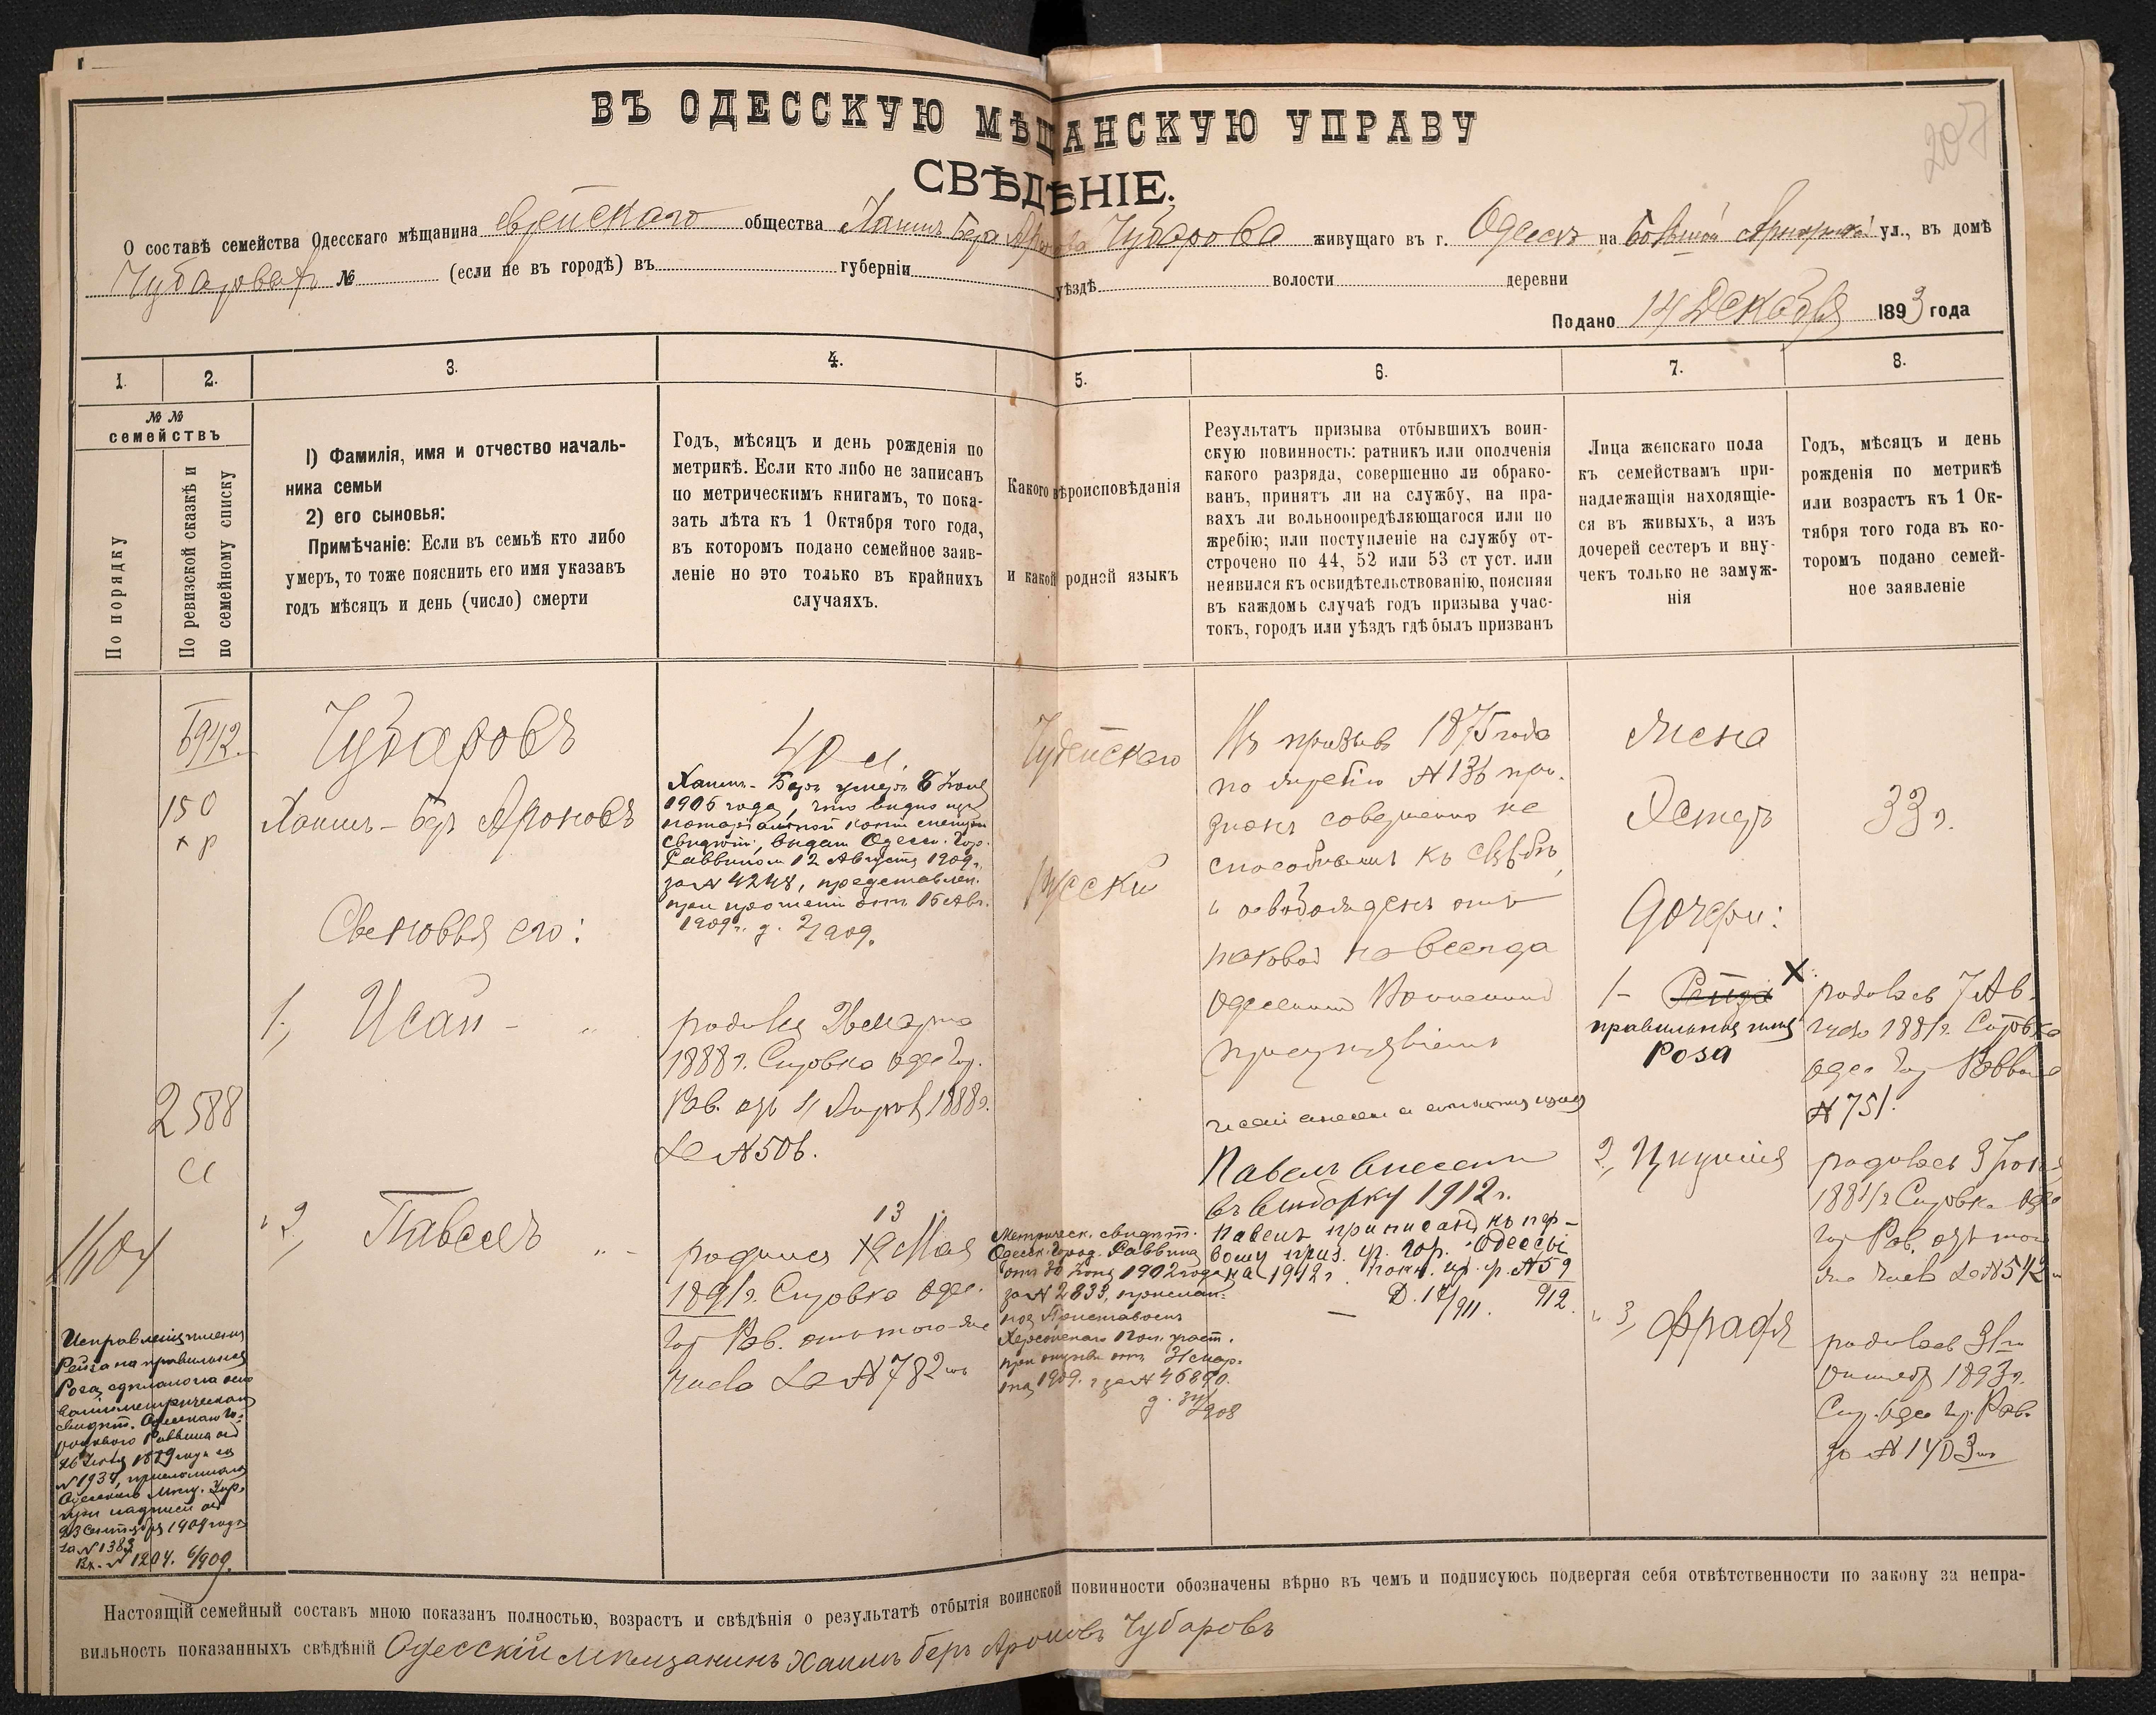 207
ВЪ ОДЕССКУЮ МѢЩАНСКУЮ УПРАВУ
СВѢДѢНІЕ.
О составѣ семейства Одесскаго мѣщанина еврейскаго общества Хаимъ Бера Аронова Чубарова живущаго въ г. Одессѣ на большой Арнаутской ул., въ домѣ
Чубарова № (если не въ городѣ) въ губерніи уѣздѣ волости деревни
Подано 14 Декабря 1893 года
1.
2.
3.
4.
5.
6.
7.
8.
№ №
семействъ
По порядку
По ревизской сказкѣ и
по семейному списку
1) Фамилія, имя и отчество началь-
ника семьи
2) его сыновья:
Примѣчаніе: Если въ семьѣ кто либо
умеръ, то тоже пояснить его имя указавъ
годъ мѣсяцъ и день (число) смерти
Годъ, мѣсяцъ и день рожденія по
метрикѣ. Если кто либо не записанъ
по метрическимъ книгамъ, то пока-
зать лѣта къ 1 Октября того года,
въ которомъ подано семейное заяв-
леніе но это только въ крайнихъ
случаяхъ.
Какого вѣроисповѣданія
и какой родной языкъ
Результатъ призыва отбывшихъ воин-
скую повинность: ратникъ или ополченія
какого разряда, совершенно ли обрако-
ванъ, принятъ ли на службу, на пра-
вахъ ли вольноопредѣляющагося или по
жребію; или поступленіе на службу от-
строчено по 44, 52 или 53 ст уст. или
неявился къ освидѣтельствованію, поясняя
въ каждомъ случаѣ годъ призыва учас-
токъ, городъ или уѣздъ гдѣ былъ призванъ
Лица женскаго пола
къ семействамъ при-
надлежащія находящіе-
ся въ живыхъ, а изъ
дочерей сестеръ и вну-
чекъ только не замуж-
нія
Годъ, мѣсяцъ и день
рожденія по метрикѣ
или возрастъ къ 1 Ок-
тября того года въ ко-
торомъ подано семей-
ное заявленіе
6942.
150
2588
1604
Чубаровъ
Хаимъ-Беръ Ароновъ
Сыновья его:
1, Исай - "
2, Павелъ " -
40 л.
Хаимъ-Беръ умеръ 8 Іюня
1906 года, что видно изъ
нотаріальной копіи
свидѣт., выдан Одесск. Гор.
Раввиномъ 12 Августа 1909 г.
за № 4248, представлен.
при прошеніи отъ 16 Авг.
1909 г.
родился марта
1888 г. Справка Одес Гор.
Рав. отъ 1888 г.
за № 506.
13
родился 19 Мая
1891 г. Справка Одес.
Гор Рав. отъ того-же
числа за № 782
Іудейскаго
Русскій
Метрическ. свидѣт.
Одесск. город. Раввина
отъ 30 Іюня 1902 года
за № 2833,
Приставомъ
Херсонскаго Пол. участ.
при отзывѣ отъ 31 мар.
1909. г за № 46890.
Въ призывѣ 1875 года
по жребію № 136 при-
знанъ совершенно не
способнымъ къ службѣ,
и освобожденъ отъ
таковой навсегда
Одесскимъ Воинскимъ
присутствіемъ
Павелъ внесенъ
въ выборку 1912 г.
Павелъ приписанъ къ пер-
вому приз. уч. гор. Одессы
на 1912 г.
Жена
Эстеръ
Дочери:
1- Рейза
правильное имя
Роза
2,
3, Фрадя
33 г.
родилась 7 Ав-
густа 1881 г. Справка
Одес Гор Раввина
№ 751.
родилась 3 Іюня
Справка Одес
Гор Рав. отъ того
же числа за № 542
родилась 31го
октября 1893 г.
Спр. Одес Гор. Рав.
за № 1403
Исправленіе имени
Рейза на правильное
Роза, сдѣлано на осно
ваніи метрическаго
свидѣт. Одесскаго Го-
родского Раввина отъ
Одесскою Мѣщ. Упр.
при надписи отъ
23 Сентября 1904 года
за № 1383
Вх. № 1204. 6/909.
Настоящій семейный составъ мною показанъ полностью, возрастъ и свѣдѣнія о результатѣ отбытія воинской повинности обозначены вѣрно въ чемъ и подписуюсь подвергая себя отвѣтственности по закону за непра-
вильность показанныхъ свѣдѣній Одесскій мѣщанинъ Хаимъ беръ Ароновъ Чубаровъ